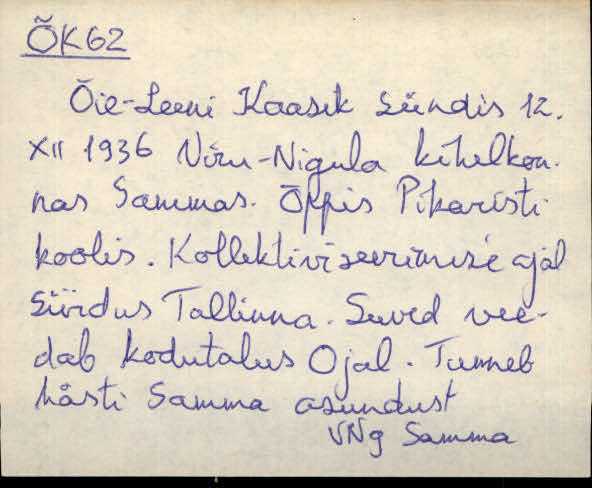 ÕK62
Õie-Leeni Kaasik sündis 12.
XII 1936 Viru-Nigula kihelkon-
nas Sammas. Õppis Pikaristi
koolis. Kollektiviseerimise ajal
siirdus Tallinna. Suved vee-
dab kodutalus Ojal. Tunneb
hästi Samma asundust
VNg Samma